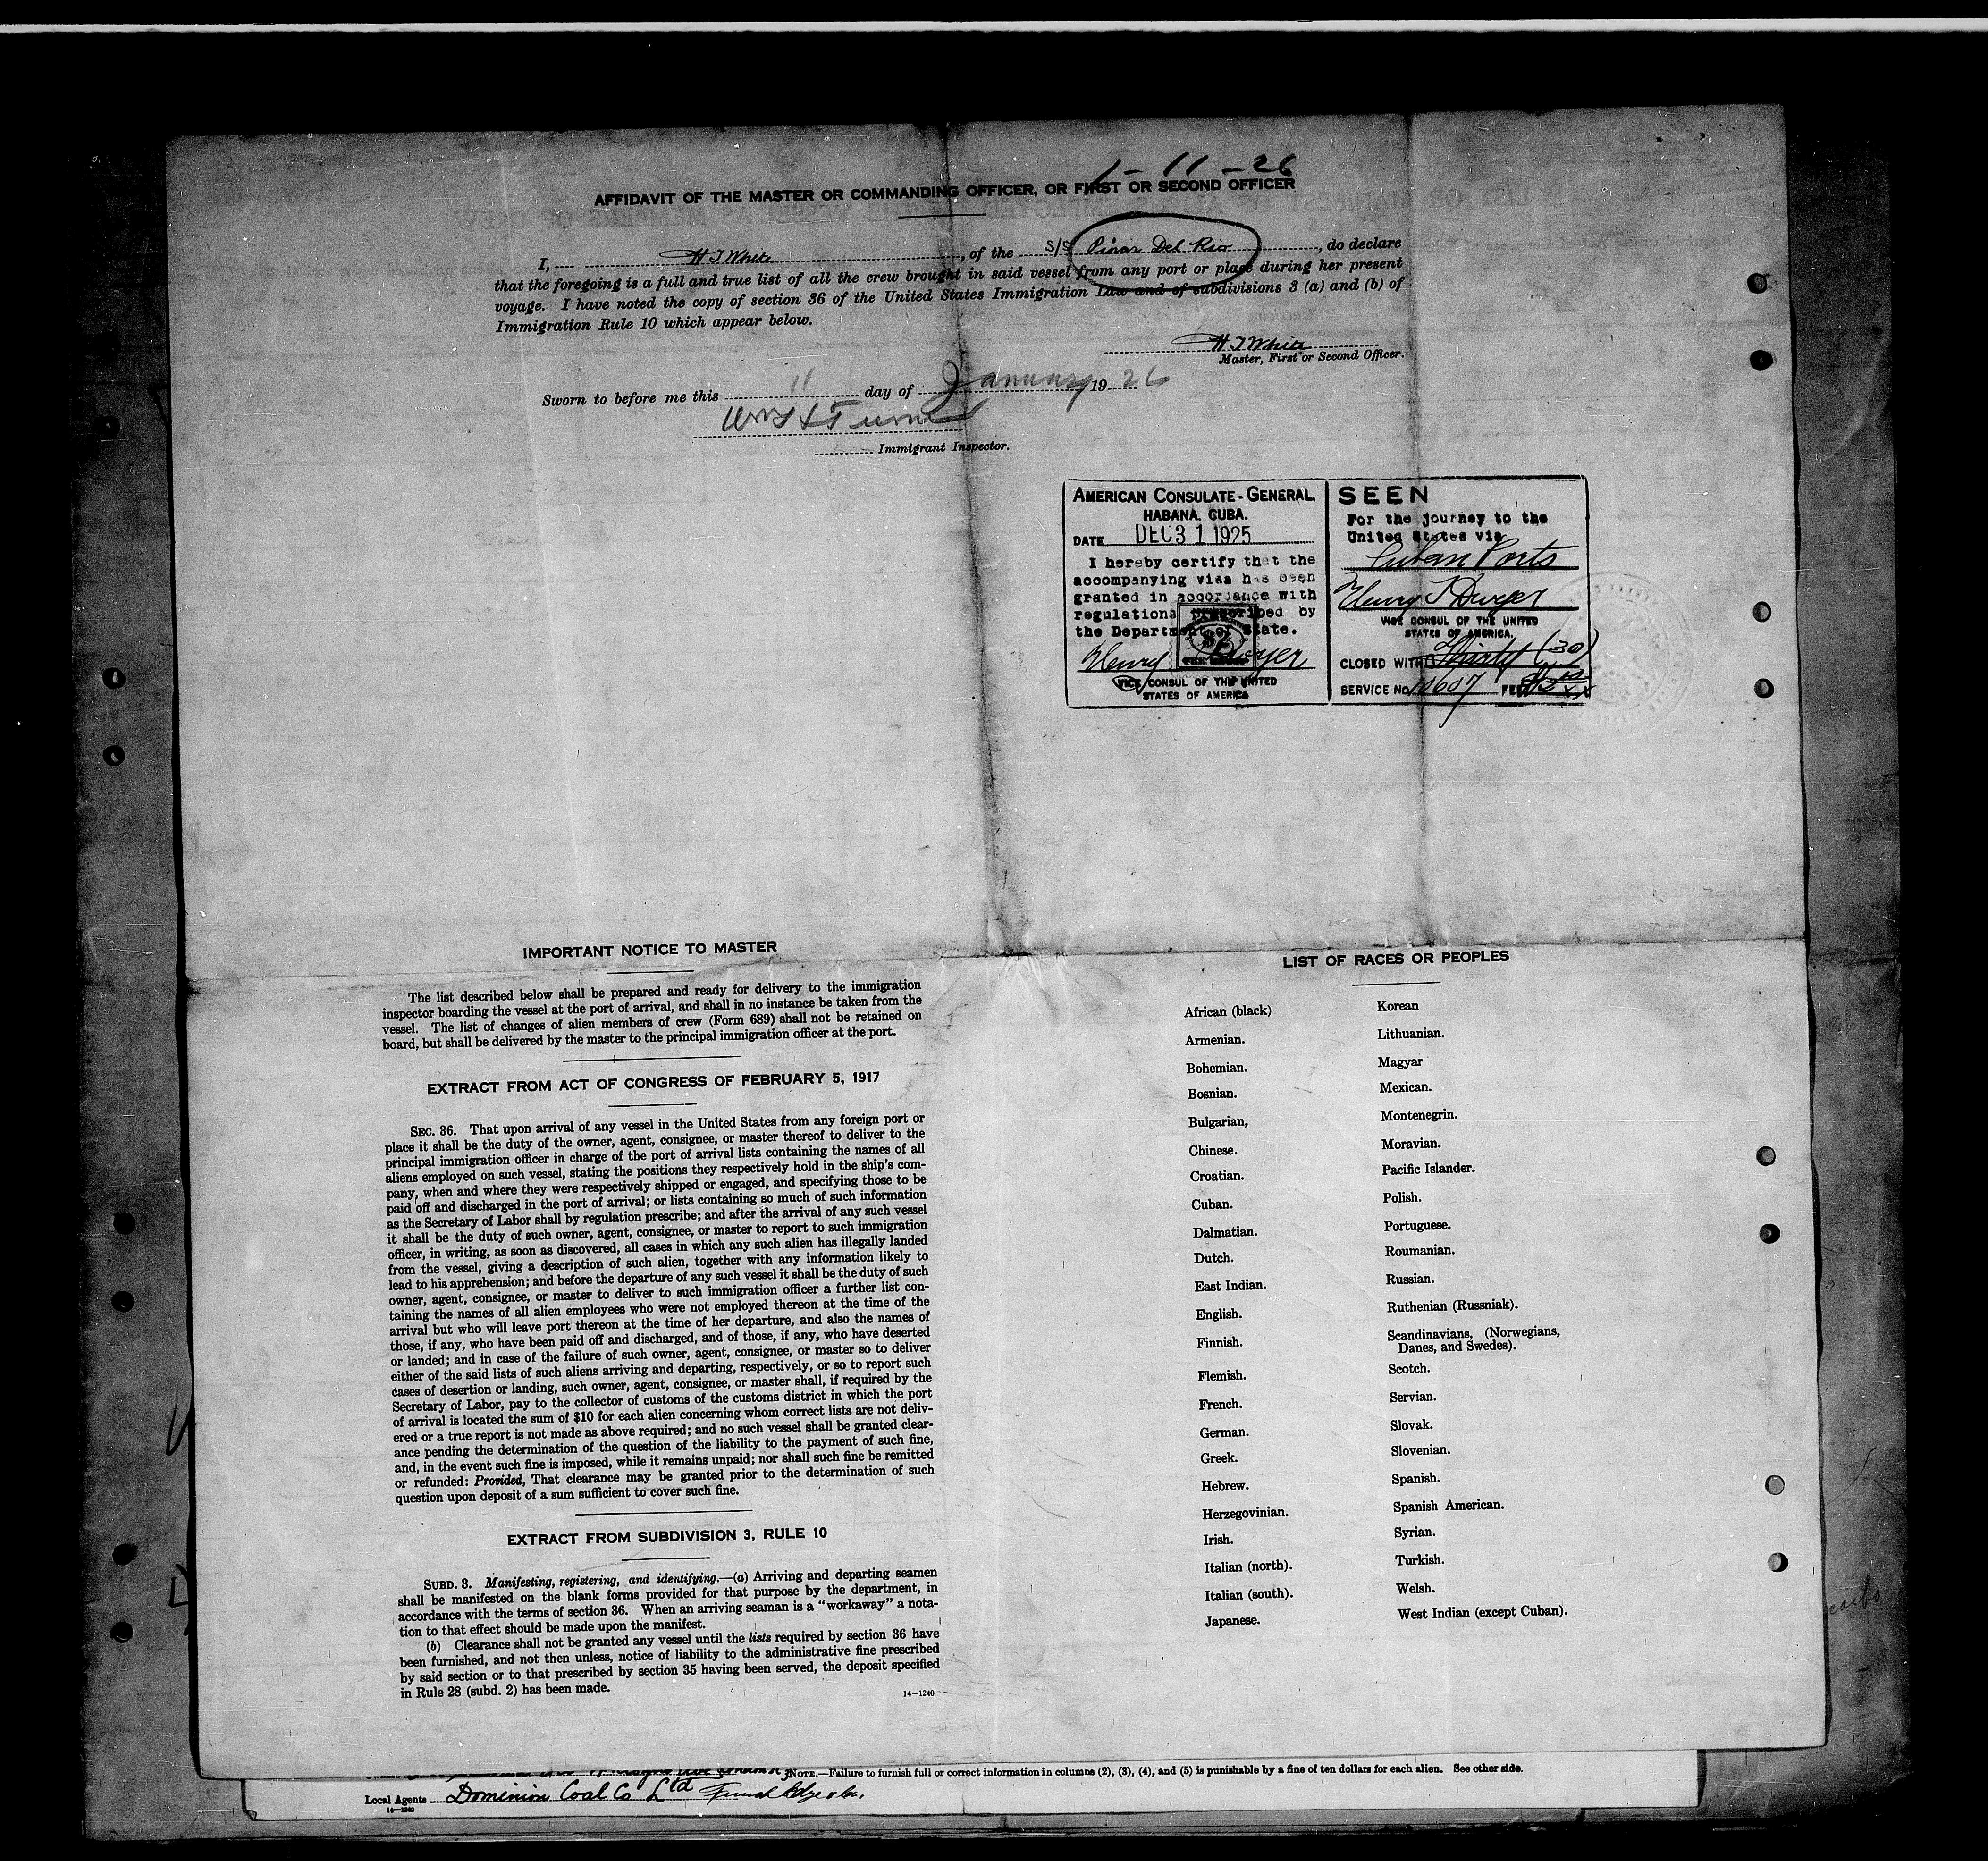 1-11-26
AFFIDAVIT OF THE MASTER OR COMMANDING OFFICER, OR FIRST OR SECOND OFFICER
I, H J White, of the S/S Pinar Del Rio, do declare
that the foregoing is a full and true list of all the crew brought in said vessel from any port or place during her present
voyage. I have noted the copy of section 36 of the United States Immigration Law and of subdivisions 3 (a) and (b) of
Immigration Rule 10 which appear below.
H J White
Master, First or Second Officer.
Sworn to before me this 11 day of January 1926
Immigrant Inspector.
AMERICAN CONSULATE-GENERAL,
HABANA, CUBA.
DATE DEC 31 1925
I hereby certify that the
accompanying visa has been
granted in accordance with
regulations prescribed by
the Department of State.
Henry Dwyer
VICE CONSUL OF THE UNITED
STATES OF AMERICA
SEEN
For the journey to the
United States via
Cuban Ports
Henry T Dwyer
VICE CONSUL OF THE UNITED
STATES OF AMERICA.
CLOSED WITH Thirty (30)
SERVICE No. 10607 FEE
IMPORTANT NOTICE TO MASTER
The list described below shall be prepared and ready for delivery to the immigration
inspector boarding the vessel at the port of arrival, and shall in no instance be taken from the
vessel. The list of changes of alien members of crew (Form 689) shall not be retained on
board, but shall be delivered by the master to the principal immigration officer at the port.
EXTRACT FROM ACT OF CONGRESS OF FEBRUARY 5, 1917
SEC. 36. That upon arrival of any vessel in the United States from any foreign port or
place it shall be the duty of the owner, agent, consignee, or master thereof to deliver to the
principal immigration officer in charge of the port of arrival lists containing the names of all
aliens employed on such vessel, stating the positions they respectively hold in the ship's com-
pany, when and where they were respectively shipped or engaged, and specifying those to be
paid off and discharged in the port of arrival; or lists containing so much of such information
as the Secretary of Labor shall by regulation prescribe; and after the arrival of any such vessel
it shall be the duty of such owner, agent, consignee, or master to report to such immigration
officer, in writing, as soon as discovered, all cases in which any such alien has illegally landed
from the vessel, giving a description of such alien, together with any information likely to
lead to his apprehension; and before the departure of any such vessel it shall be the duty of such
owner, agent, consignee, or master to deliver to such immigration officer a further list con-
taining the names of all alien employees who were not employed thereon at the time of the
arrival but who will leave port thereon at the time of her departure, and also the names of
those, if any, who have been paid off and discharged, and of those, if any, who have deserted
or landed; and in case of the failure of such owner, agent, consignee, or master so to deliver
either of the said lists of such aliens arriving and departing, respectively, or so to report such
cases of desertion or landing, such owner, agent, consignee, or master shall, if required by the
Secretary of Labor, pay to the collector of customs of the customs district in which the port
of arrival is located the sum of $10 for each alien concerning whom correct lists are not deliv-
ered or a true report is not made as above required; and no such vessel shall be granted clear-
ance pending the determination of the question of the liability to the payment of such fine,
and, in the event such fine is imposed, while it remains unpaid; nor shall such fine be remitted
or refunded: Provided, That clearance may be granted prior to the determination of such
question upon deposit of a sum sufficient to cover such fine.
EXTRACT FROM SUBDIVISION 3, RULE 10
SUBD. 3. Manifesting, registering, and identifying.—(a) Arriving and departing seamen
shall be manifested on the blank forms provided for that purpose by the department, in
accordance with the terms of section 36. When an arriving seaman is a "workaway" a nota-
tion to that effect should be made upon the manifest.
(b) Clearance shall not be granted any vessel until the lists required by section 36 have
been furnished, and not then unless, notice of liability to the administrative fine prescribed
by said section or to that prescribed by section 35 having been served, the deposit specified
in Rule 28 (subd. 2) has been made.
14—1240
LIST OF RACES OR PEOPLES
African (black)
Armenian.
Bohemian.
Bosnian.
Bulgarian,
Chinese.
Croatian.
Cuban.
Dalmatian.
Dutch.
East Indian.
English.
Finnish.
Flemish.
French.
German.
Greek.
Hebrew.
Herzegovinian.
Irish.
Italian (north).
Italian (south).
Japanese.
Korean
Lithuanian.
Magyar
Mexican.
Montenegrin.
Moravian.
Pacific Islander.
Polish.
Portuguese.
Roumanian.
Russian.
Ruthenian (Russniak).
Scandinavians, (Norwegians,
Danes, and Swedes).
Scotch.
Servian.
Slovak.
Slovenian.
Spanish.
Spanish American.
Syrian.
Turkish.
Welsh.
West Indian (except Cuban).
NOTE.—Failure to furnish full or correct information in columns (2), (3), (4), and (5) is punishable by a fine of ten dollars for each alien. See other side.
Local Agents Dominion Coal Co Ltd
14—1240